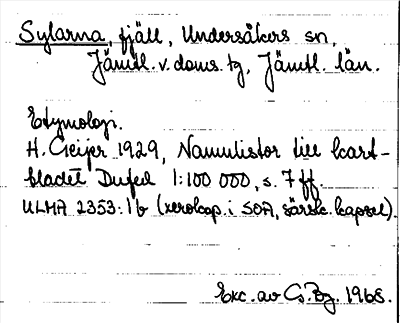 Sylarna, fjäll, Undersåkers sn,
Jämtl. v. doms. tg, Jämtl. län.
Etymologi.
H. Geijer 1929, Namnlistor till kart-
bladet Dufed 1:100 000, s. 7 ff.
ULMA 2353:1b (xerokop. i SOA, särsk. kapsel).
Exc. av G. Bg. 1968.